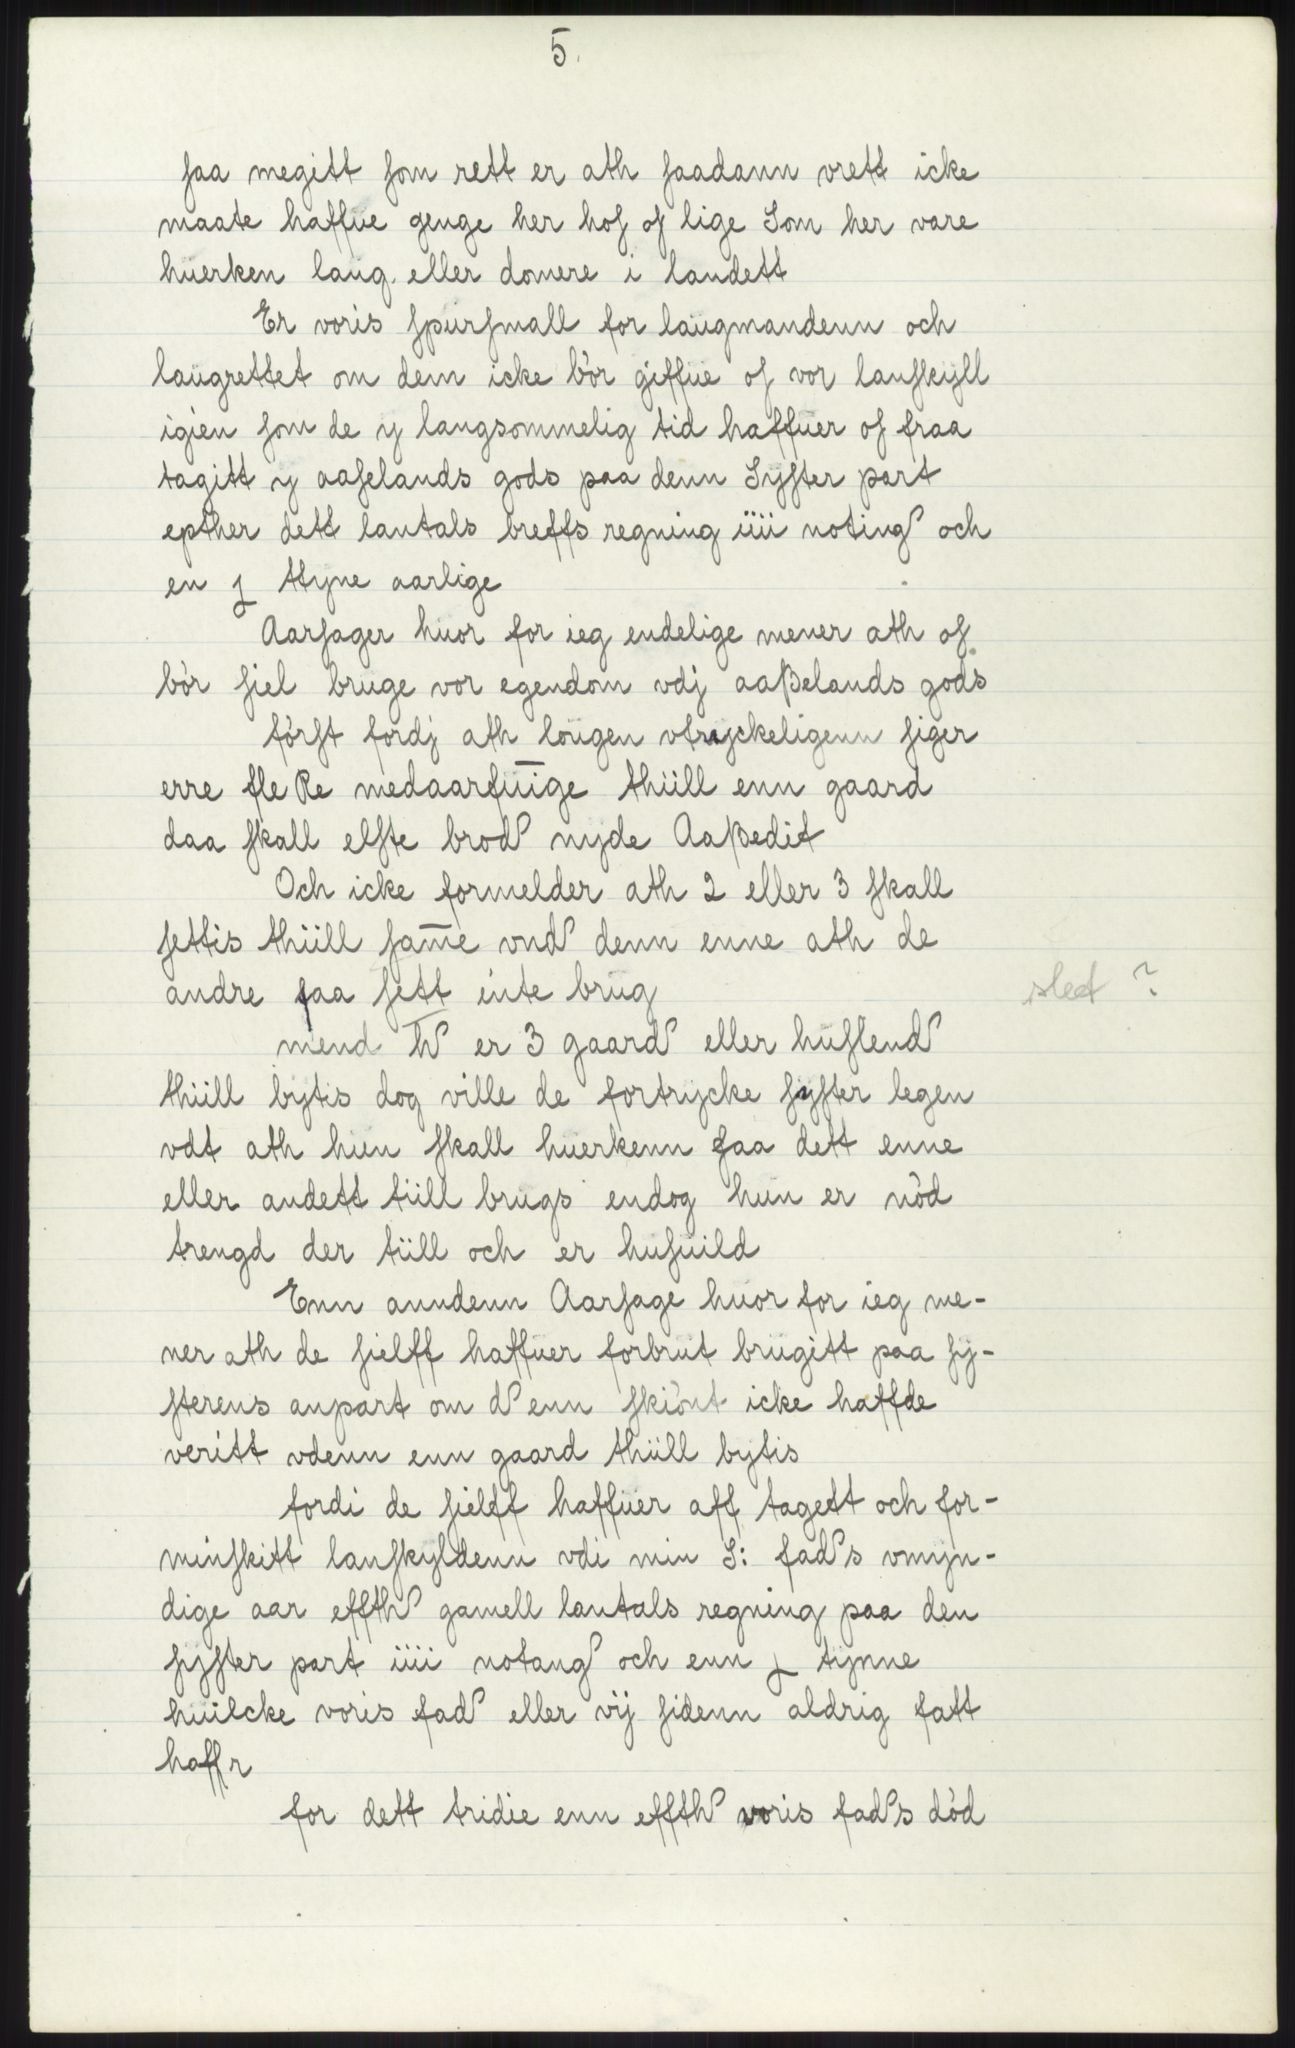 5.
saa megitt som rett er ath saadann vrett icke
maate haffue genge her hos os lige Som her vare
huerken laug. eller domere i landett
Er voris spursmall for laugmandenn och
laugrettet om dem icke bör giffue os vor lanskyll
igien som de y langsommelig tid haffuer os fraa
tagitt y aaselands gods paa denn Syster part
epther dett lantals breffs regning iiii noting och
en j ttyne aarlige
Aarsager huor for ieg endelige mener ath os
bör siel bruge vor egendom vdj aaßelands gods
först fordj ath lougen vtryckeligenn siger
erre fleRe medaarfuige thiill enn gaard
daa skall elste brod nyde Aaßedit
Och icke formelder ath 2 eller 3 skall
settis thiill same vnd denn enne ath de
andre saa sett inte brug
slet ?
mend er 3 gaard eller huslend
thiill bytis dog ville de fortrycke syster legen
vdt ath hun skall huerkenn faa dett enne
eller andett tiill brugs endog hun er nöd
trengd der tiill och er husuild
Enn anndenn Aarsage huor for ieg me-
ner ath de sielff haffuer forbrut brugitt paa sy-
sterens anpart om d enn skiönt icke haffde
veritt vdenn enn gaard thiill bytis
fordi de sielff haffuer aff tagett och for-
minskitt lanskyldenn vdi min S: fads vmyn-
dige aar effth gamell lantals regning paa den
syster part iiii notang och enn j tynne
huilcke voris fad eller vij sidenn aldrig fatt
haffr
for dett tridie enn effth voris fads död